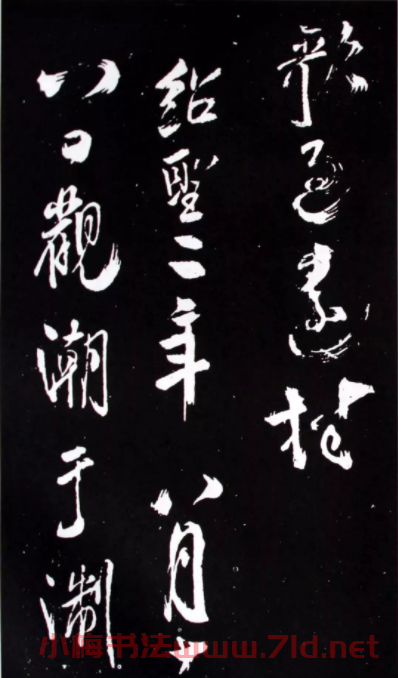 歌過遠村
紹聖二年八月十
八日觀潮于淛
小梅书法www.7ld.net